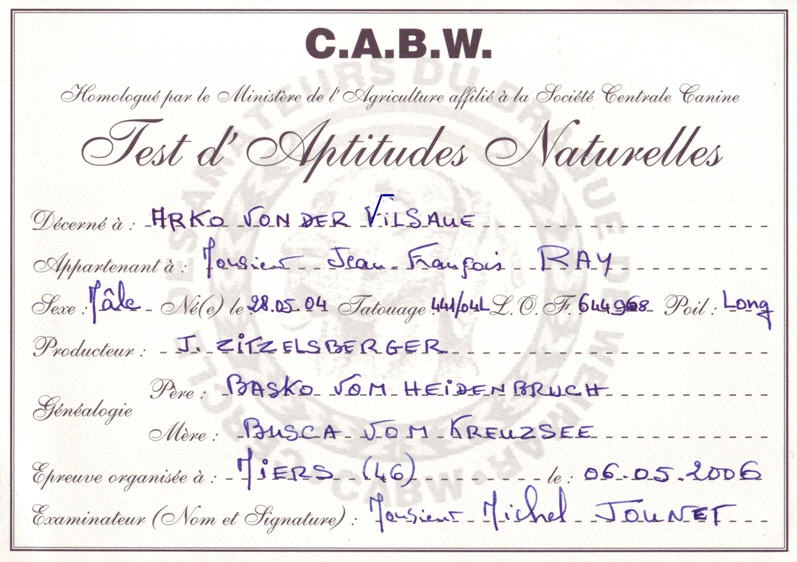 C.A.B.W.
Homologué par le Ministère de l'Agriculture affilié à la Société Centrale Canine
Test d'Aptitudes Naturelles
Décerné à : ARKO VON DER VILSAUE
Appartenant à : Monsieur Jean François RAY
Sexe : Mâle Né(e) le 28.05.04 Tatouage 441/04L L.O.F. Poil : Long
Producteur : J. ZITZELSBERGER
Généalogie
Père : BASKO VOM HEIDENBRUCH
Mère : BUSCA VOM KREUZSEE
Epreuve organisée à : MIERS (46) le : 06.05.2006
Examinateur (Nom et Signature) : Monsieur Michel JOUNET